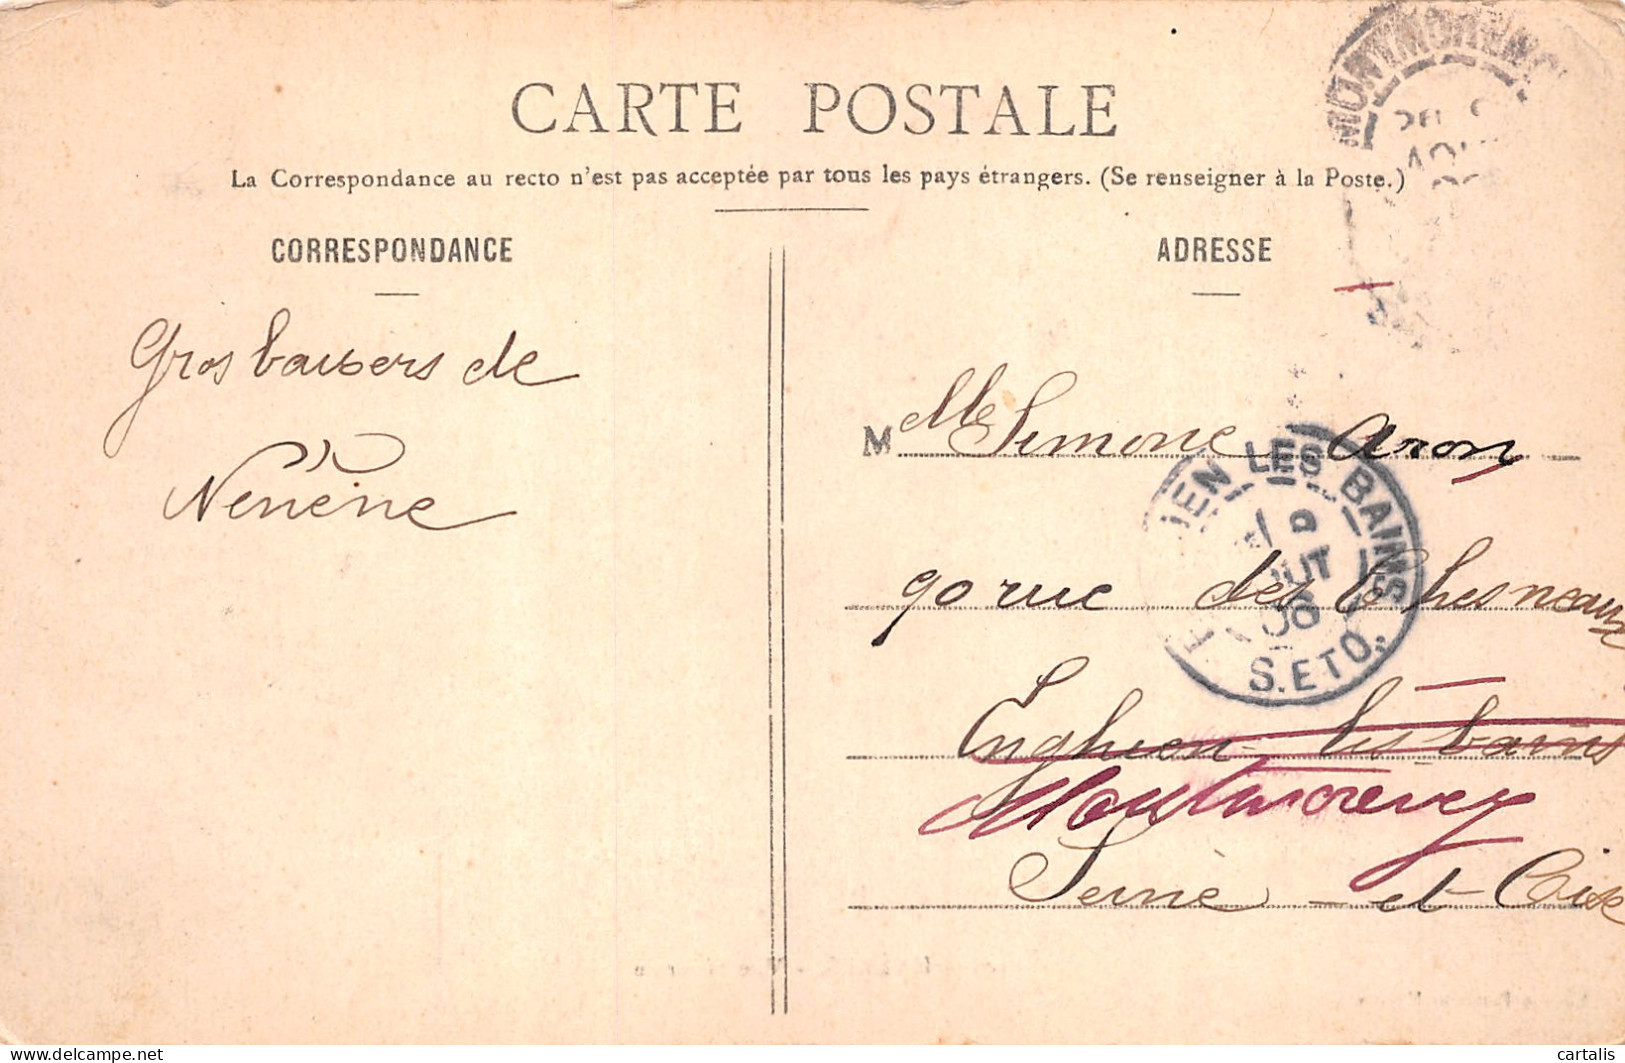 CARTE POSTALE
La Correspondance au recto n'est pas acceptée par tous les pays étrangers. (Se renseigner à la Poste.)
CORRESPONDANCE
ADRESSE
Gros baisers de
Nénène
M Mlle Simone Aron
90 rue des Chesneaux
Enghien-les-bains
Montmorency
Seine-et-Oise
MONTMORENCY
IEN LES BAINS
OUT
06
S.ETO.
delcampe.net
cartalis